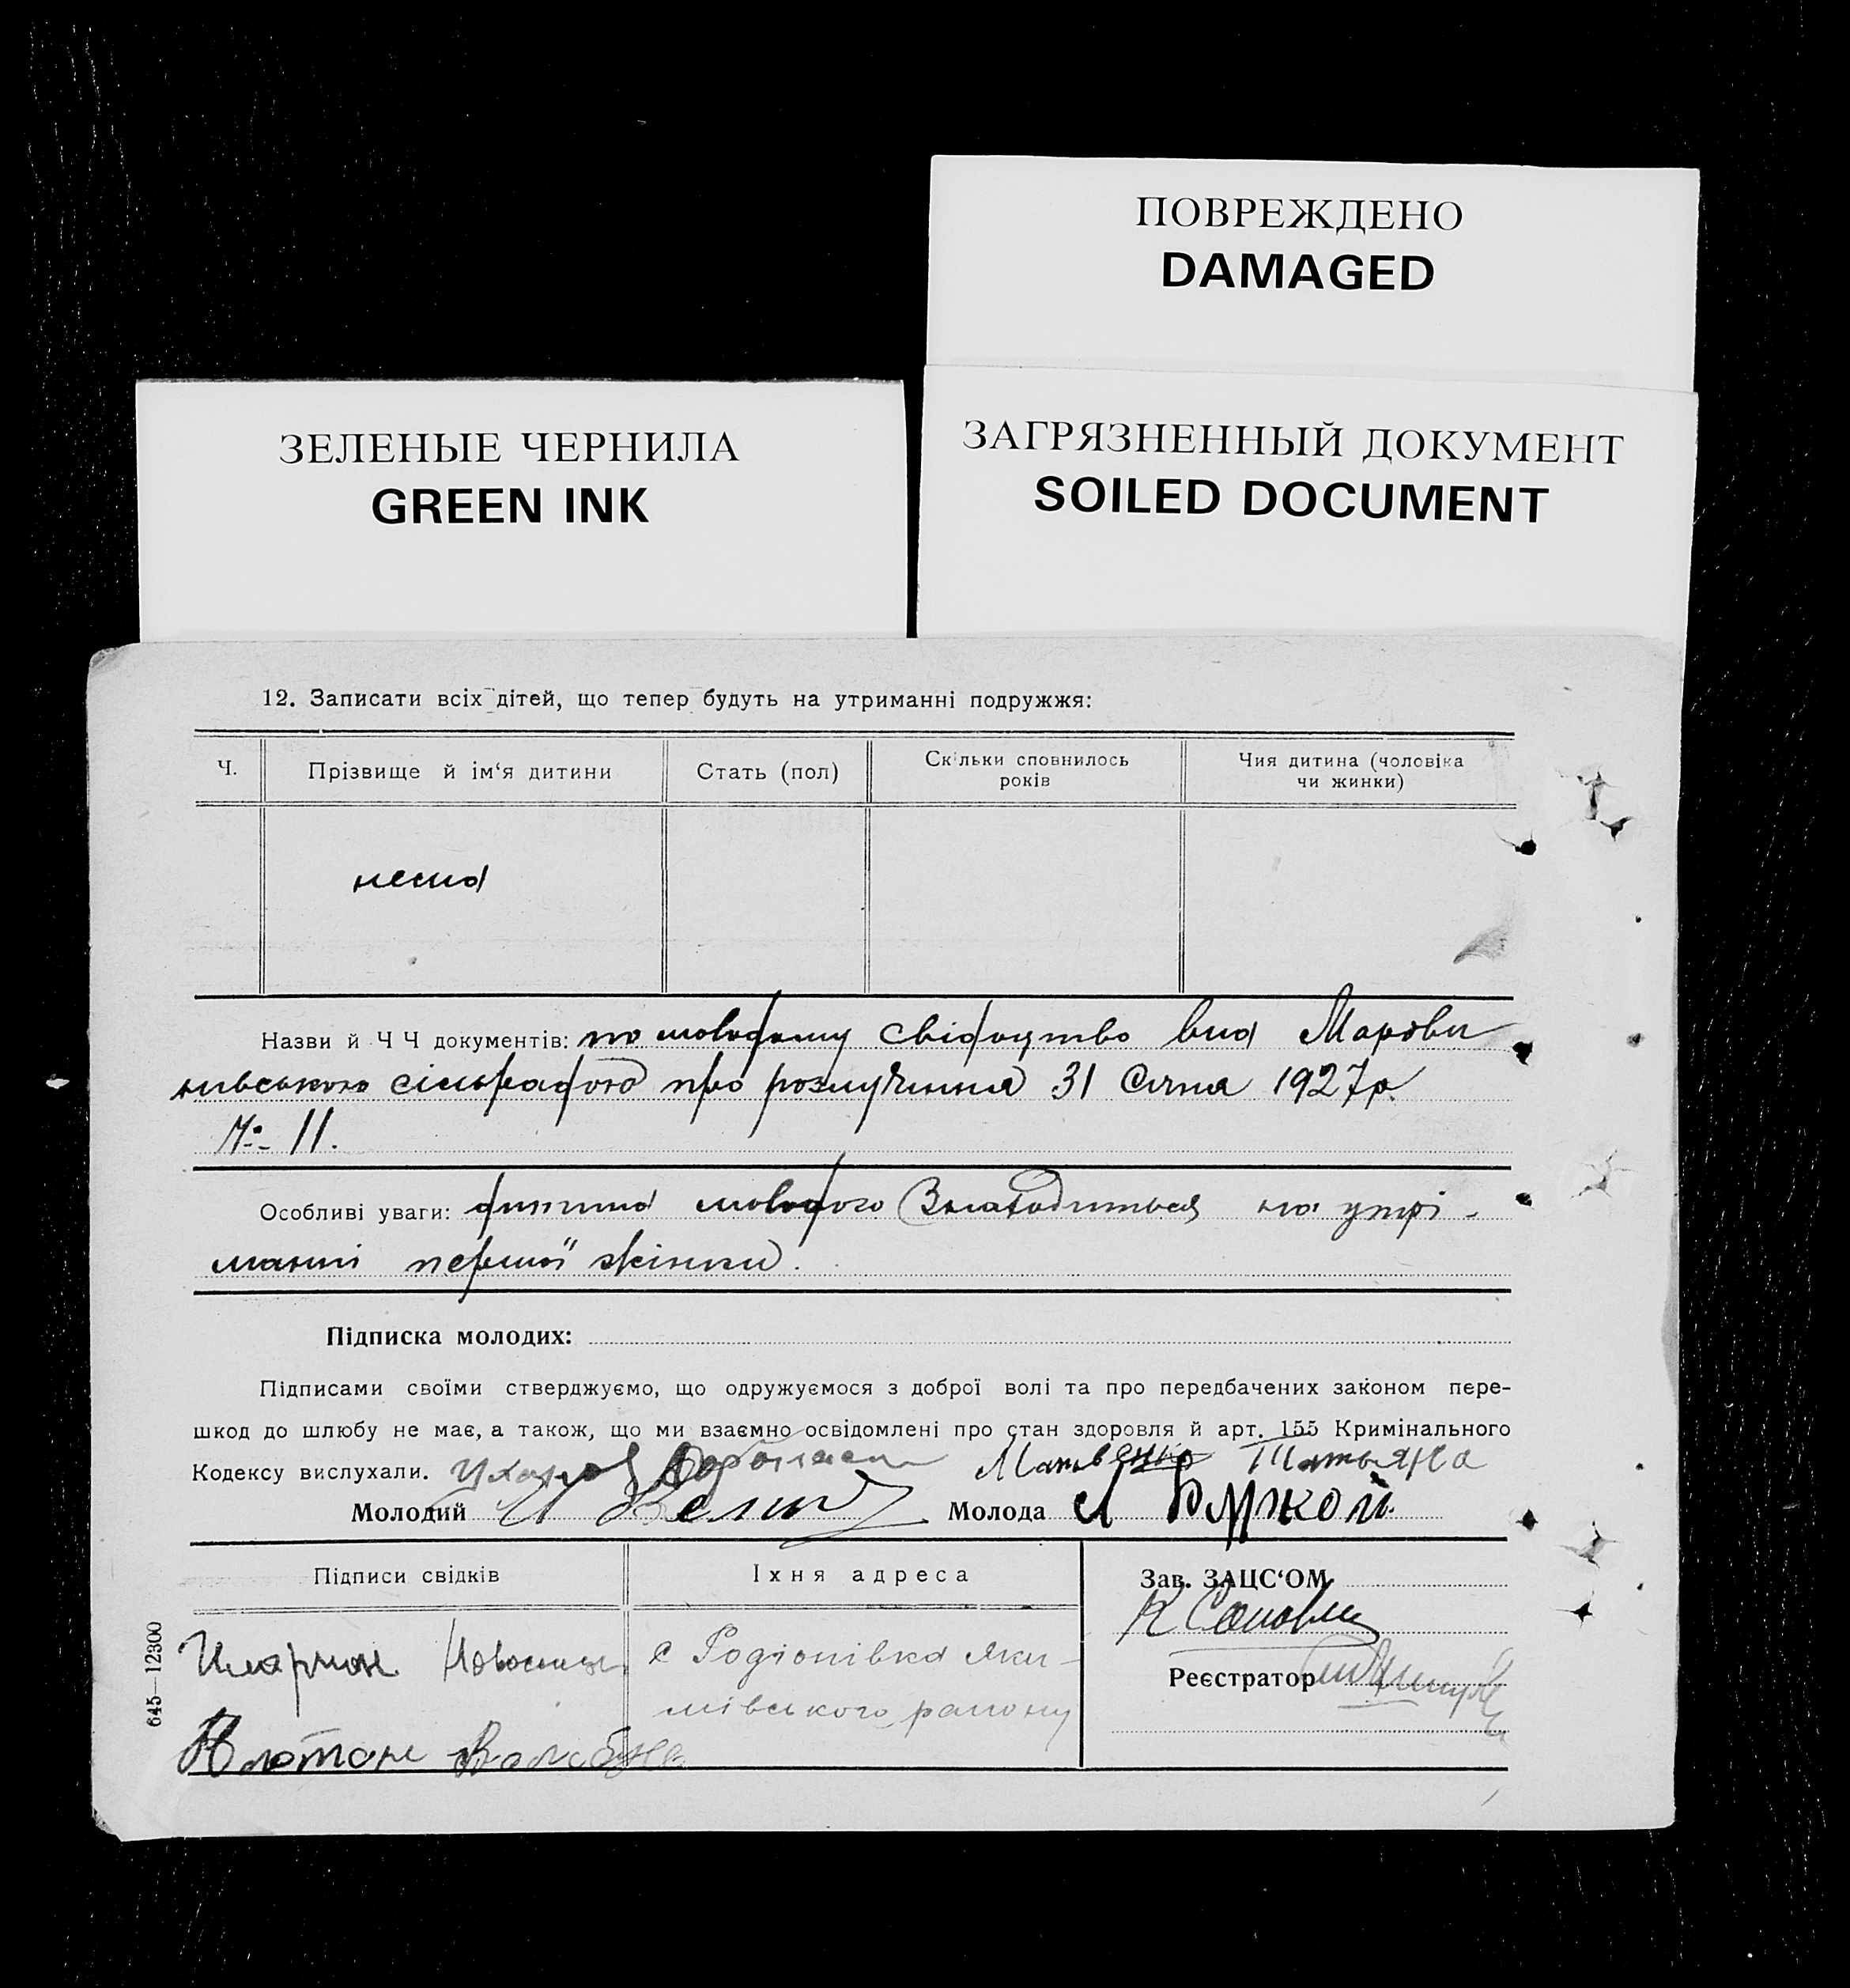 ПОВРЕЖДЕНО
DAMAGED
ЗЕЛЕНЫЕ ЧЕРНИЛА
GREEN INK
ЗАГРЯЗНЕННЫЙ ДОКУМЕНТ
SOILED DOCUMENT
12. Записати всіх дітей, що тепер будуть на утриманні подружжя:
Ч. Прізвище й ім‘я дитини Стать (пол) Скільки сповнилось років Чия дитина (чоловіка чи жинки)
нема
Назви й Ч Ч документів: по молодому свідоцтво вид
сільрадою про розлучиння 31 Січня 1927р.
№ 11.
Особливі уваги: дитина молодого Знаходиться на утрі-
манні першої жінки.
Підписка молодих:
Підписами своїми стверджуємо, що одружуємося з доброї волі та про передбачених законом пере-
шкод до шлюбу не має, а також, що ми взаємно освідомлені про стан здоровля й арт. 155 Кримінального
Кодексу вислухали. Татьяна
Молодий Молода
Підписи свідків Іхня адреса Зав. ЗАЦС‘ОМ
Иларион с Родіонівка Яки-
Реєстратор
мівського району
Платон
645—12300